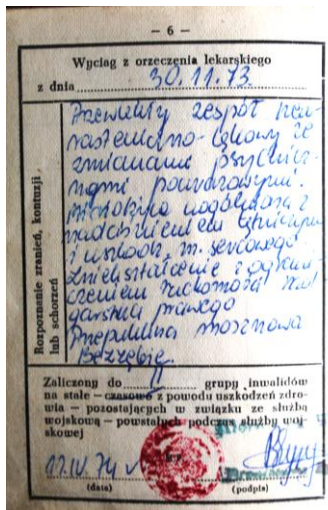 — 6 —
Wyciąg z orzeczenia lekarskiego
z dnia 30.11.73
Rozpoznanie zranień, kontuzji
lub schorzeń
Przewlekły zespół neu-
rasteniczno-lękowy ze
zmianami psychicz-
nymi pourazowymi.
Miażdżyca uogólniona z
nadciśnieniem tętniczym
i uszkodz. m. sercowego
Zniekształcenie z ograni-
czeniem ruchomości nad-
garstka prawego
Przepuklina mosznowa
Bezzębie
Zaliczony do II grupy inwalidów
na stałe — czasowo z powodu uszkodzeń zdro-
wia — pozostających w związku ze służbą
wojskową — powstałych podczas służby woj-
skowej
17.IV.74
(data) (podpis)